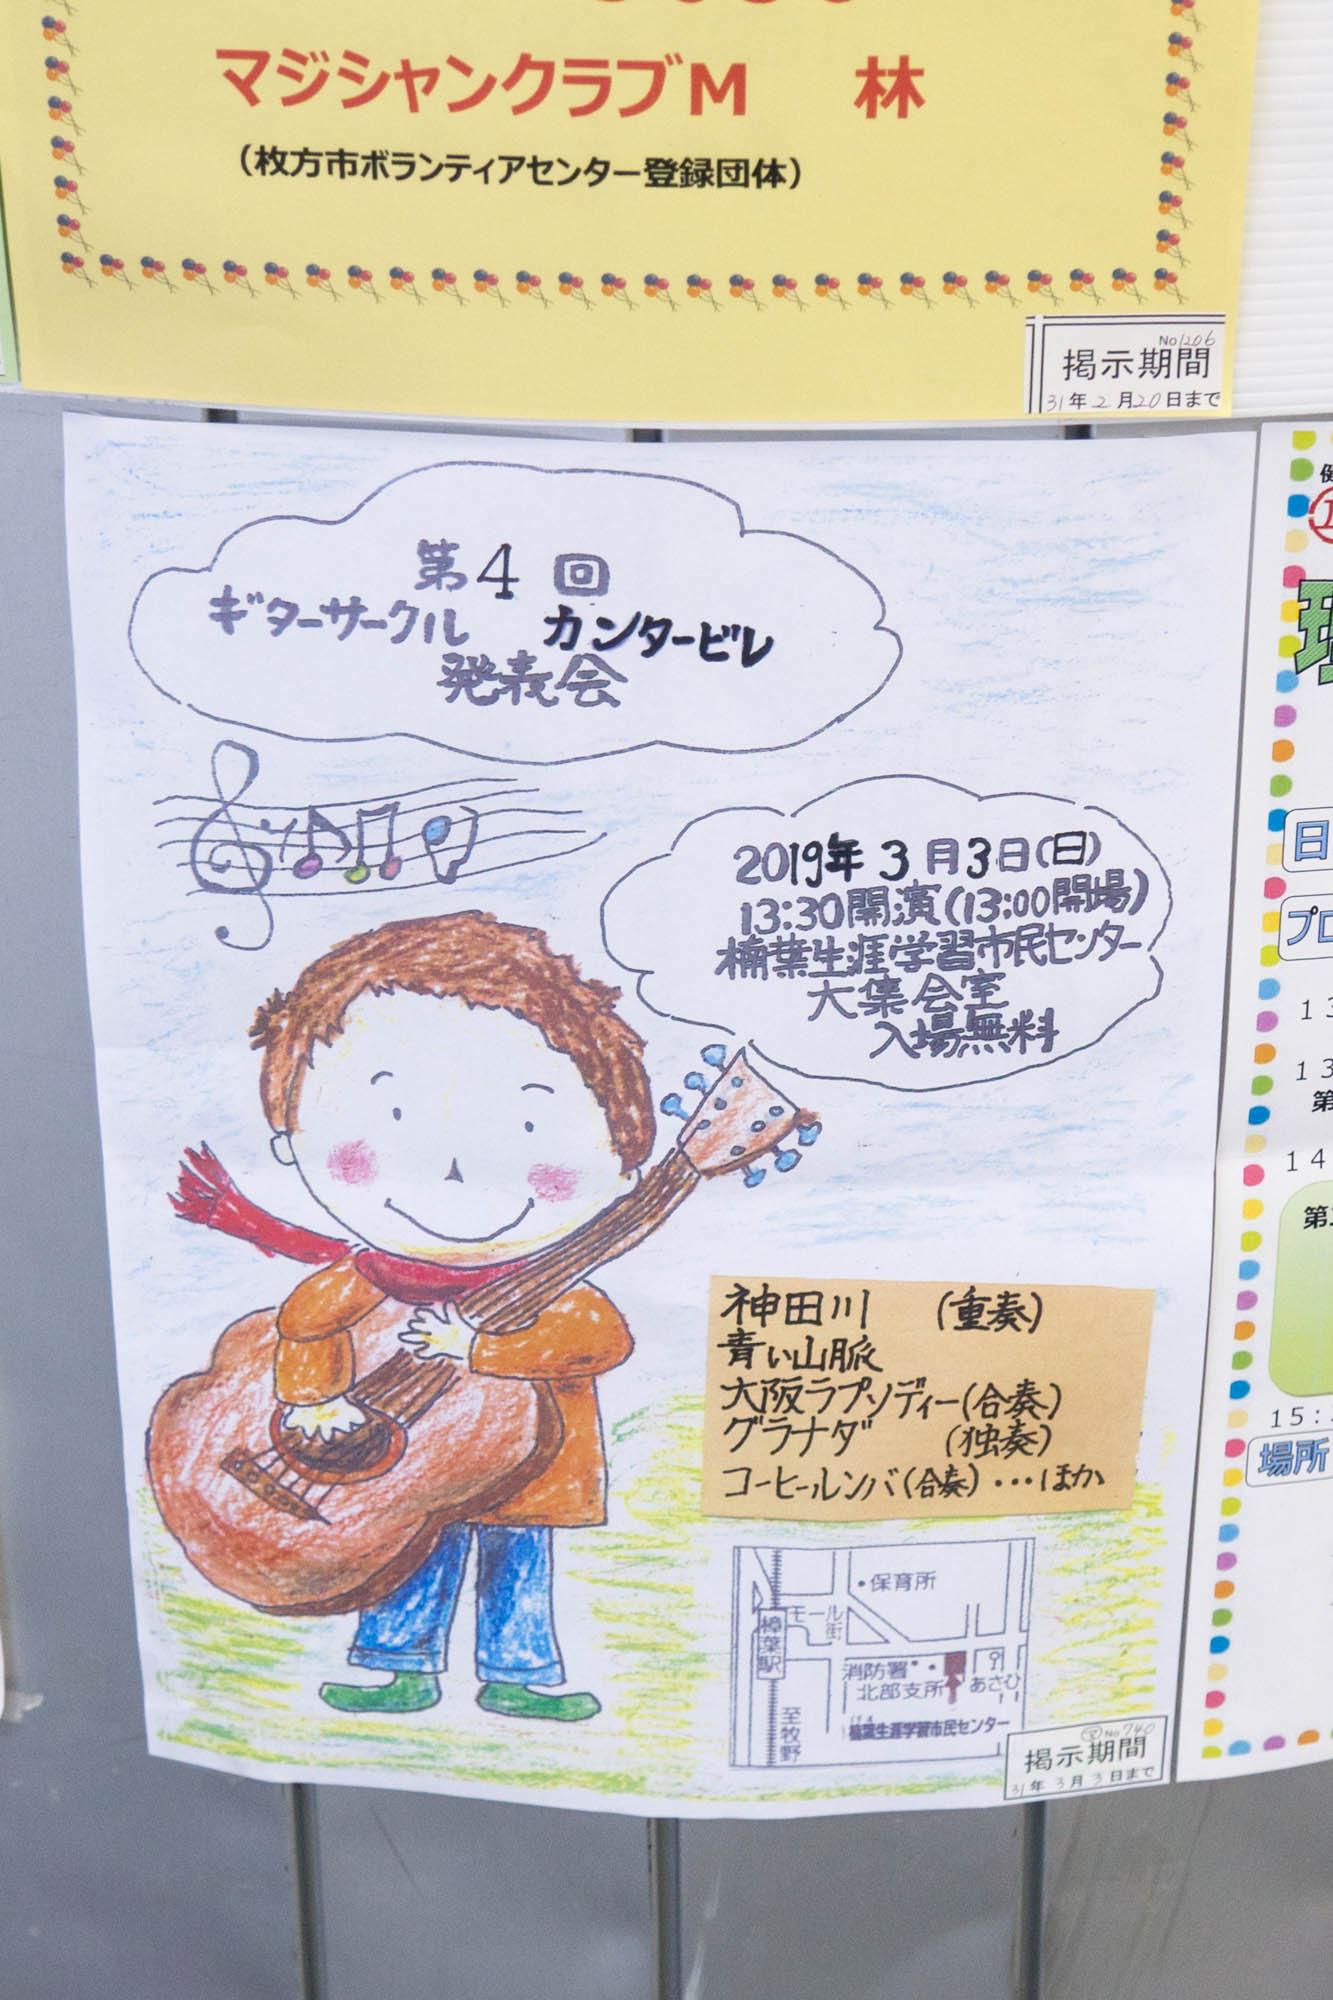 マジシャンクラブM 林
（枚方市ボランティアセンター登録団体）
No1206
掲示期間
31年2月20日まで
第4回
ギターサークル カンタービレ
発表会
2019年3月3日(日)
13:30開演(13:00開場)
楠葉生涯学習市民センター
大集会室
入場無料
神田川 (重奏)
青い山脈
大阪ラプソディー(合奏)
グラナダ (独奏)
コーヒールンバ(合奏)…ほか
・保育所
モール街
樟葉駅
消防署
北部支所
あさひ
至牧野
楠葉生涯学習市民センター
No740
掲示期間
31年3月3日まで
日
プロ
13
13
第
14
第
15:
場所